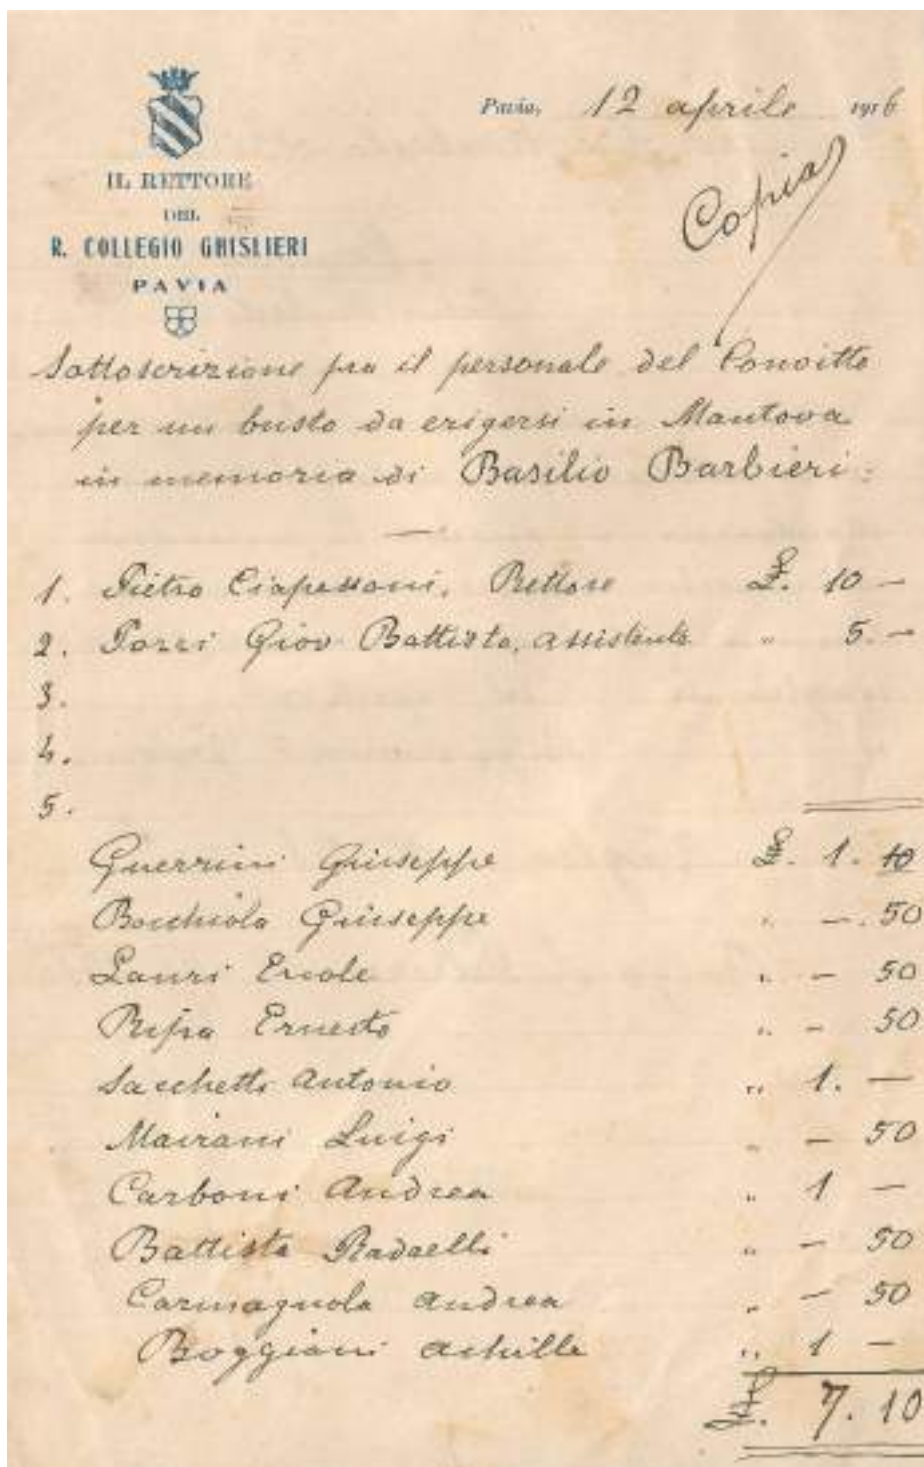 Pavia, 12 aprile 1916
Copia
IL RETTORE
DEL
R. COLLEGIO GHISLIERI
PAVIA
Sottoscrizione fra il personale del Convitto
per un busto da erigersi in Mantova
in memoria di Basilio Barbieri:
1. Pietro Ciapessoni, Rettore £. 10 —
2. Torri Giov. Battista, assistente " 5. —
3.
4.
5.
Guerrini Giuseppe £. 1. 10
Bocchiola Giuseppe " —. 50
Lauri Ercole " — 50
Ripa Ernesto " — 50
Sacchetti Antonio " 1. —
Mairani Luigi " — 50
Carboni Andrea " 1 —
Battista Radaelli " — 50
Carmagnola Andrea " — 50
Boggiani Achille " 1 —
£. 7. 10